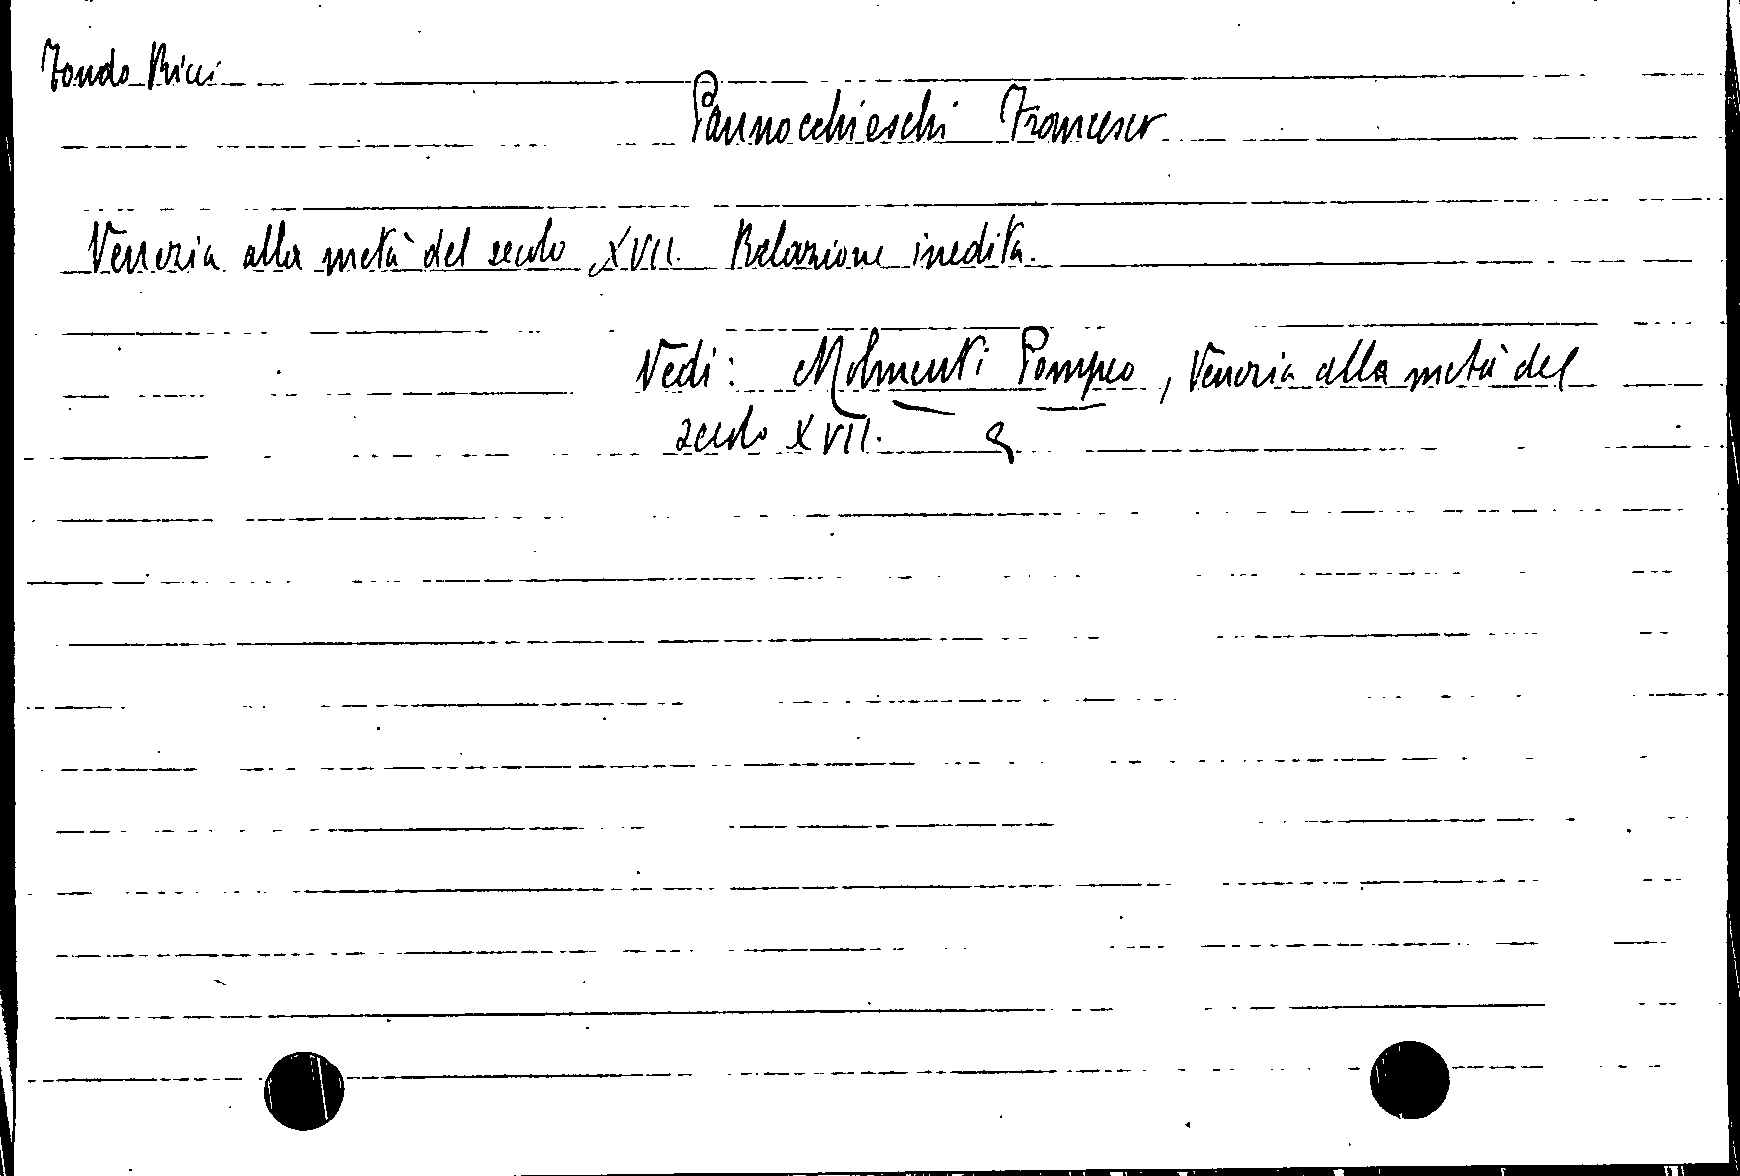 Fondo Ricci
Pannocchieschi Francesco
Venezia alla metà del secolo XVII. Relazione inedita.
Vedi: Molmenti Pompeo, Venezia alla metà del
secolo XVII.